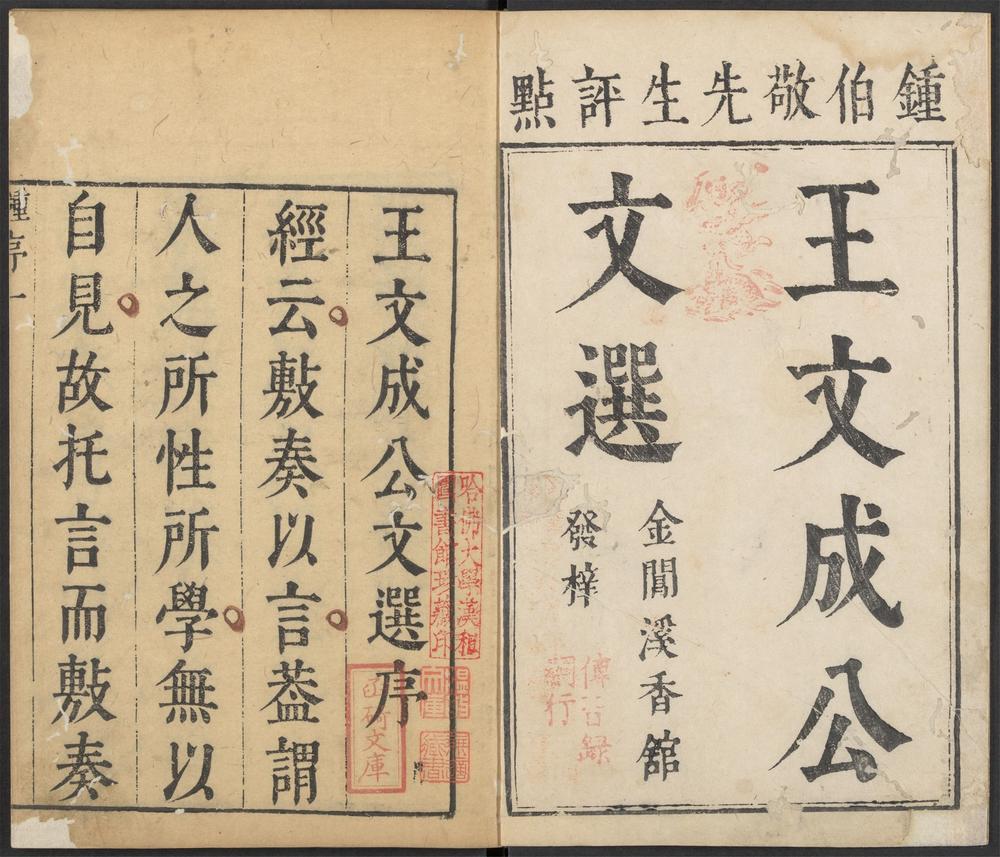 鍾伯敬先生評點
王文成公
文選
金閶溪香舘
發梓
王文成公文選序
經云敷奏以言葢謂
人之所性所學無以
自見故托言而敷奏
鍾序 一
哈佛大學漢和
圖書館珍藏印
文庫